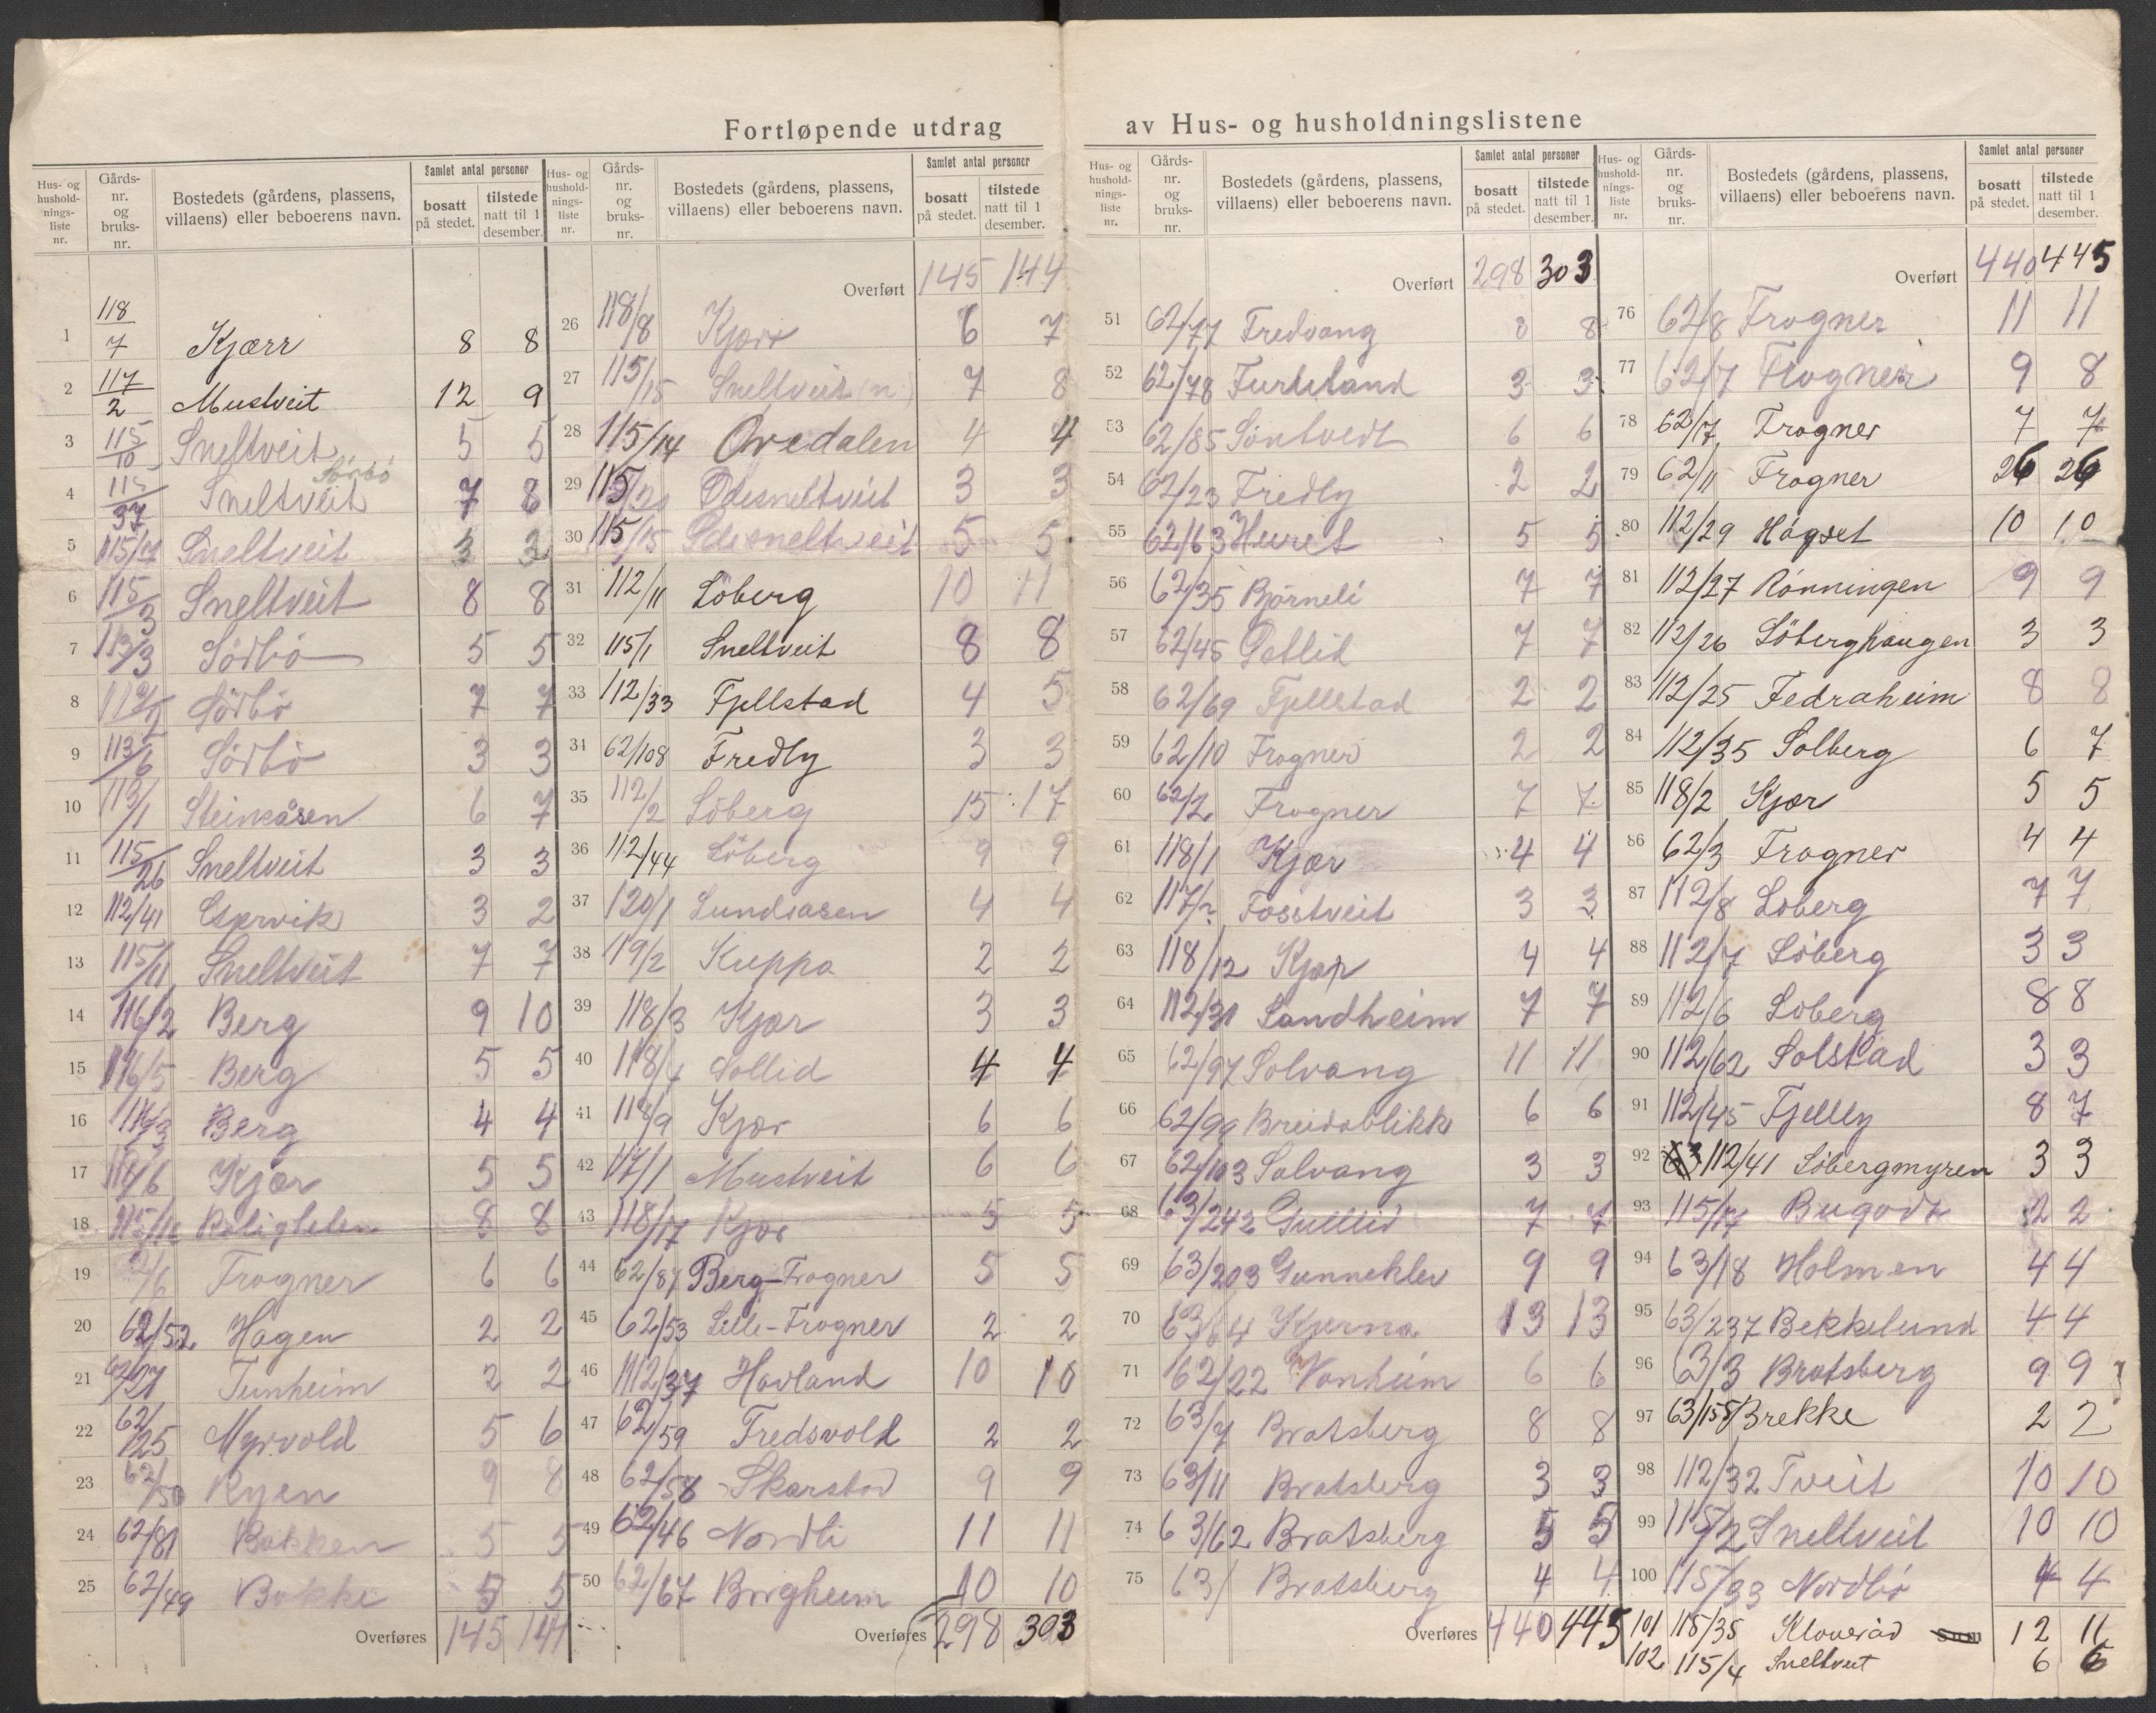 Fortløpende utdrag av Hus- og husholdningslistene
Hus- og hushold-nings-liste nr. Gårds-nr. og bruks-nr. Bostedets (gårdens, plassens, villaens) eller beboerens navn. Samlet antal personer bosatt på stedet. tilstede natt til 1 desember.
1 118/7 Kjærr 8 8
2 117/2 Mustveit 12 9
3 115/10 Sneltveit 5 5
4 115/37 Sneltveit Sörbö 7 8
5 Sneltveit 3 3
6 115/3 Sneltveit 8 8
7 113/3 Sörbö 5 5
8 Sörbö 7 7
9 113/6 Sörbö 3 3
10 113/1 Steinsåsen 6 7
11 115/26 Sneltveit 3 3
12 112/41 3 2
13 115/11 Sneltveit 7 7
14 116/2 Berg 9 10
15 116/5 Berg 5 5
16 116/3 Berg 4 4
17 Kjær 5 5
18 115/16 8 8
19 Frogner 6 6
20 62/52 Hagen 2 2
21 62/27 Tunheim 2 2
22 62/25 Myrvold 5 6
23 62/50 Ryen 9 8
24 62/81 Bakken 5 5
25 62/49 Bakke 5 5
Overføres 145 144
Hus- og hushold-nings-liste nr. Gårds-nr. og bruks-nr. Bostedets (gårdens, plassens, villaens) eller beboerens navn. Samlet antal personer bosatt på stedet. tilstede natt til 1 desember.
Overført 145 144
26 118/8 Kjær 6 7
27 115/15 Sneltveit (n) 7 8
28 115/14 Øvredalen 4 4
29 Ødesneltveit 3 3
30 115/15 Ødesneltveit 5 5
31 112/11 Löberg 10 11
32 115/1 Sneltveit 8 8
33 112/33 Fjellstad 4 5
34 62/108 Fredly 3 3
35 112/2 Löberg 15 17
36 112/44 Löberg 9 9
37 120/1 Lundsåsen 4 4
38 119/2 Kleppa 2 2
39 118/3 Kjær 3 3
40 118/4 Sollid 4 4
41 118/9 Kjær 6 6
42 117/1 Mustveit 6 6
43 118/17 Kjær 5 5
44 62/87 Berg-Frogner 5 5
45 62/53 Lille-Frogner 2 2
46 112/37 Havland 10 10
47 62/59 Fredsvold 2 2
48 62/58 Skarstad 9 9
49 62/46 Nordli 11 11
50 62/67 Borgheim 10 10
Overføres 298 303
Hus- og hushold-nings-liste nr. Gårds-nr. og bruks-nr. Bostedets (gårdens, plassens, villaens) eller beboerens navn. Samlet antal personer bosatt på stedet. tilstede natt til 1 desember.
Overført 298 303
51 62/77 Fredvang 8 8
52 62/78 Furuland 3 3
53 62/85 Söntvedt 6 6
54 62/23 Fredly 2 2
55 62/63 5 5
56 62/35 Bjørneli 7 7
57 62/45 7 7
58 62/69 Fjellstad 2 2
59 62/10 Frogner 2 2
60 62/2 Frogner 7 7
61 118/1 Kjær 4 4
62 117/2 Fosstveit 3 3
63 118/12 Kjær 4 4
64 112/31 Landheim 7 7
65 62/97 Solvang 11 11
66 62/99 Breidablikk 6 6
67 62/103 Solvang 3 3
68 63/242 Gullid 7 7
69 63/203 Gunneklev 9 9
70 63/64 Kjerna 13 13
71 62/22 Vonheim 6 6
72 63/7 Bratsberg 8 8
73 63/11 Bratsberg 3 3
74 63/62 Bratsberg 5 5
75 63/ Bratsberg 4 4
Overføres 440 445
Hus- og hushold-nings-liste nr. Gårds-nr. og bruks-nr. Bostedets (gårdens, plassens, villaens) eller beboerens navn. Samlet antal personer bosatt på stedet. tilstede natt til 1 desember.
Overført 440 445
76 62/8 Frogner 11 11
77 62/7 Frogner 9 8
78 62/17 Frogner 7 7
79 62/11 Frogner 26 26
80 112/29 Høgset 10 10
81 112/27 Rönningen 9 9
82 112/26 Löberghaugen 3 3
83 112/25 Fedraheim 8 8
84 112/35 Solberg 6 7
85 118/2 Kjær 5 5
86 62/3 Frogner 4 4
87 112/8 Löberg 7 7
88 112/7 Löberg 3 3
89 112/6 Löberg 8 8
90 112/62 Solstad 3 3
91 112/45 Fjelly 8 7
92 112/41 Löbergmyren 3 3
93 115/17 2 2
94 63/18 Holmen 4 4
95 63/237 Bekkelund 4 4
96 63/3 Bratsberg 9 9
97 63/155 Brekke 2 2
98 112/32 Tveit 10 10
99 115/2 Sneltveit 10 10
100 115/33 Nordbö 4 4
101 115/35 Sum 12 11
102 115/4 Sneltveit 6 6